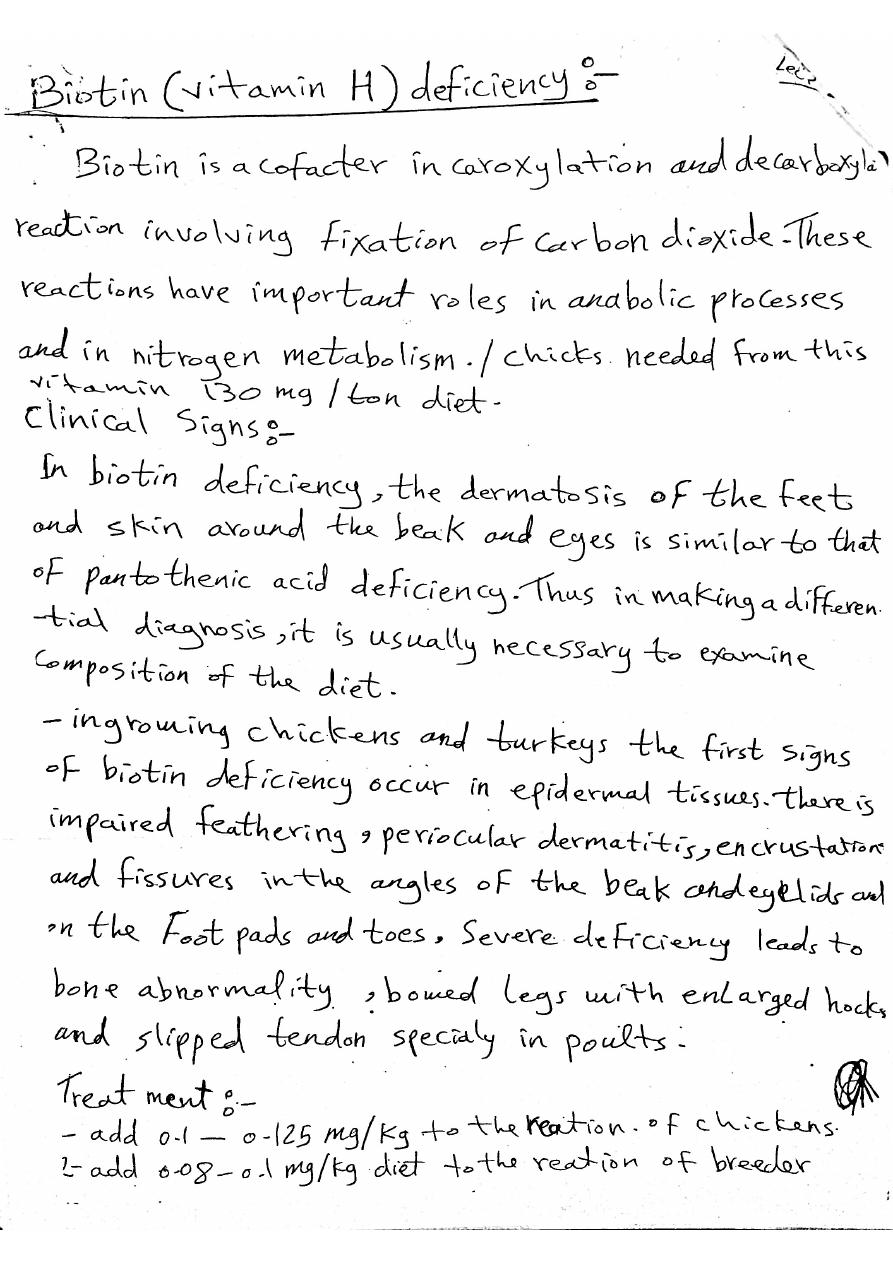 Biotin (vitamin H) deficiency :-
Lec2.
Biotin is a cofacter in caroxylation and decarboxyla
reaction involving fixation of carbon dioxide. These
reactions have important roles in anabolic processes
and in nitrogen metabolism. / chicks needed from this
vitamin 130 mg / ton diet.
Clinical Signs:-
In biotin deficiency, the dermatosis of the feet
and skin around the beak and eyes is similar to that
of pantothenic acid deficiency. Thus in making a differen-
-tial diagnosis, it is usually necessary to examine
Composition of the diet.
- ingrowing chickens and turkeys the first signs
of biotin deficiency occur in epidermal tissues. there is
impaired feathering, periocular dermatitis, encrustation
and fissures in the angles of the beak and eyelids and
on the Foot pads and toes. Severe deficiency leads to
bone abnormality, bowed legs with enlarged hocks
and slipped tendon specialy in poults.
Treatment :-
- add 0.1 - 0.125 mg/kg to the reation of chickens.
2- add 0.08 - 0.1 mg/kg diet to the reation of breeder